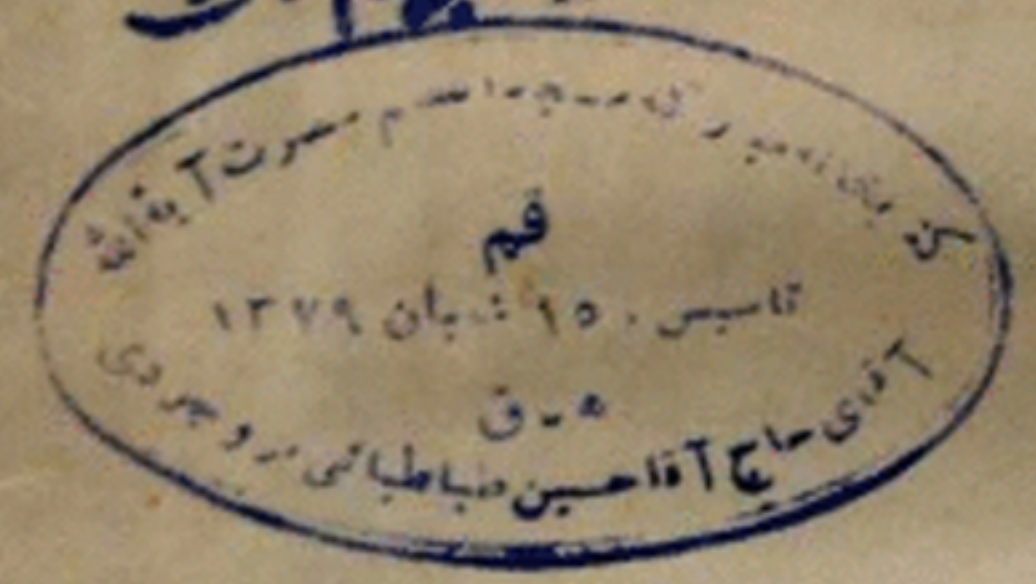 کتابخانه مبارکه مسجد اعظم حضرت آیةالله
قم
تاسیس ۱۵ شعبان ۱۳۷۹
ه‍ـ ق
آقای حاج آقا حسین طباطبائی بروجردی